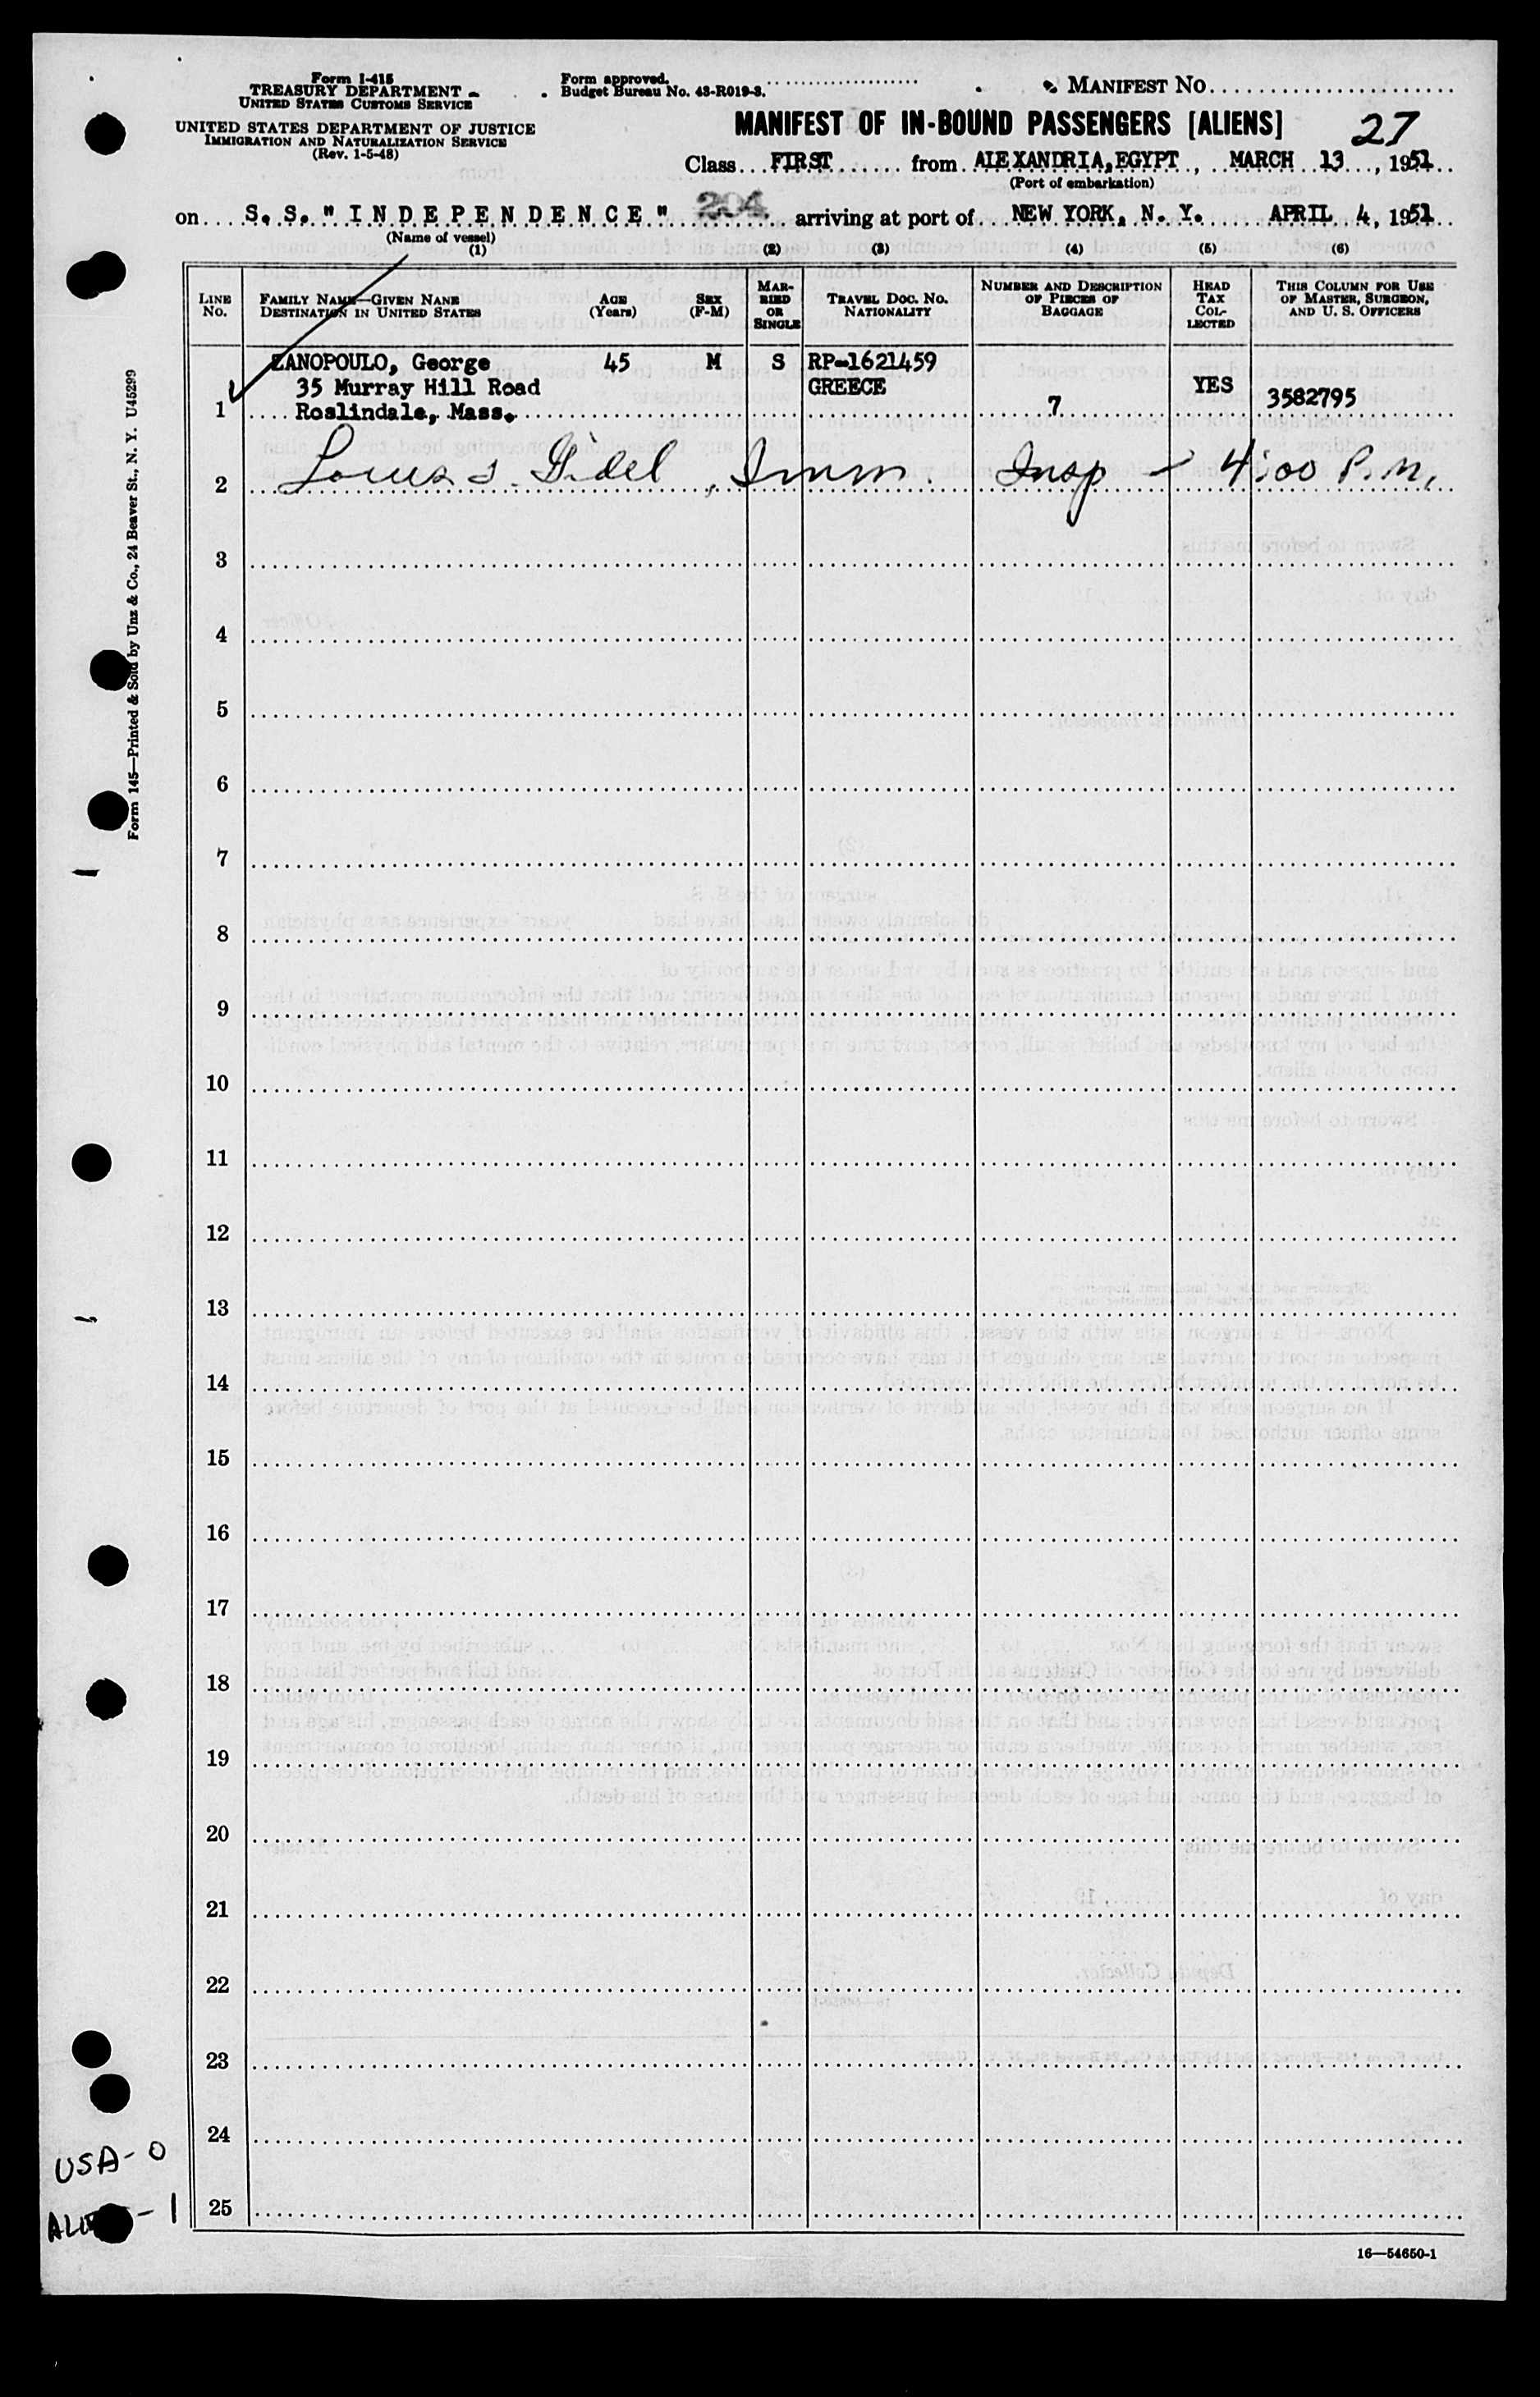 Form I-415
TREASURY DEPARTMENT
UNITED STATES CUSTOMS SERVICE
UNITED STATES DEPARTMENT OF JUSTICE
IMMIGRATION AND NATURALIZATION SERVICE
(Rev. 1-5-48)
Form approved.
Budget Bureau No. 43-R019-3.
MANIFEST NO.
MANIFEST OF IN-BOUND PASSENGERS [ALIENS]
27
Class FIRST from ALEXANDRIA, EGYPT, MARCH 13, 1951
(Port of embarkation)
on S. S. "INDEPENDENCE" 204 arriving at port of NEW YORK, N. Y. APRIL 4, 1951
(Name of vessel)
(1) (2) (3) (4) (5) (6)
LINE NO.
FAMILY NAME—GIVEN NAME
DESTINATION IN UNITED STATES
AGE (Years)
SEX (F-M)
MARRIED OR SINGLE
TRAVEL DOC. NO.
NATIONALITY
NUMBER AND DESCRIPTION OF PIECES OF BAGGAGE
HEAD TAX COLLECTED
THIS COLUMN FOR USE OF MASTER, SURGEON, AND U. S. OFFICERS
ZANOPOULO, George 45 M S RP-1621459
35 Murray Hill Road GREECE YES
1 Roslindale, Mass. 7 3582795
2 Louis Fidel, Imm. Insp - 4:00 P.M.
3
4
5
6
7
8
9
10
11
12
13
14
15
16
17
18
19
20
21
22
23
24
25
Form 145—Printed & Sold by Unz & Co., 24 Beaver St., N. Y. U45299
USA - 0
- 1
16—54650-1